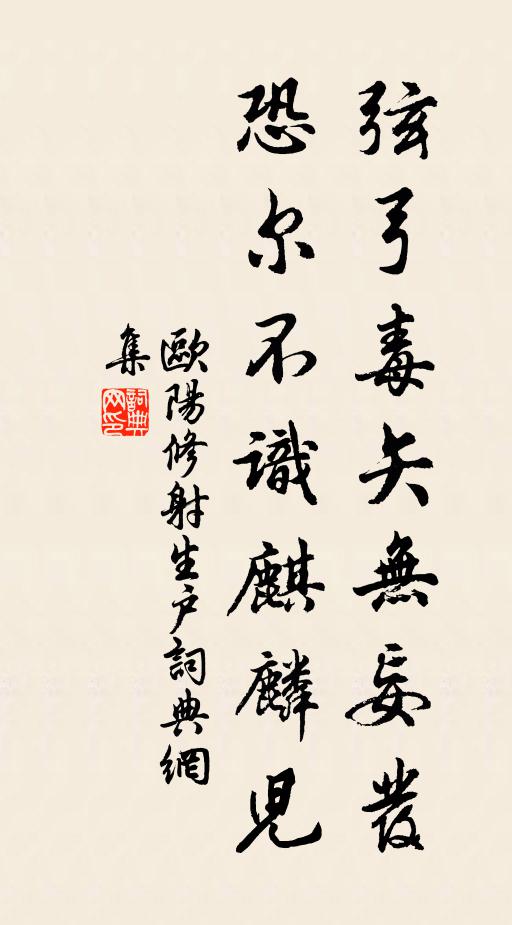 弦弓毒矢無妄發
恐尔不識麒麟児
歐陽修射生户詞典網
集
詞典
网印